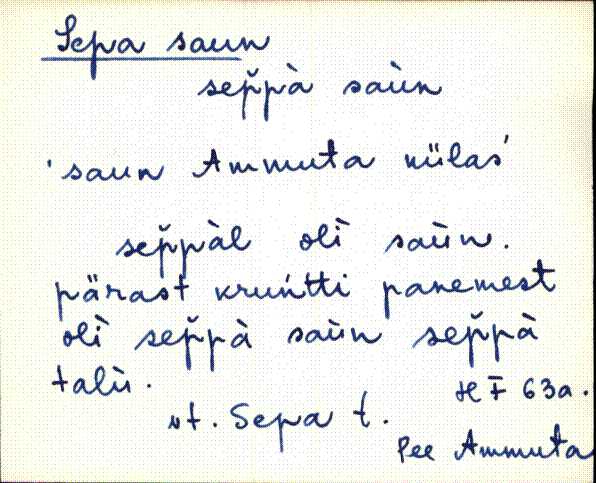 Sepa saun
sep̆pà saùn
'saun Ammuta külas'
sep̆pàl olì saùn.
pärast kruńtti panemest
olì sep̆pà saùn sep̆pà
talù.
HF 63a.
vt. Sepa t.
Pee Ammuta